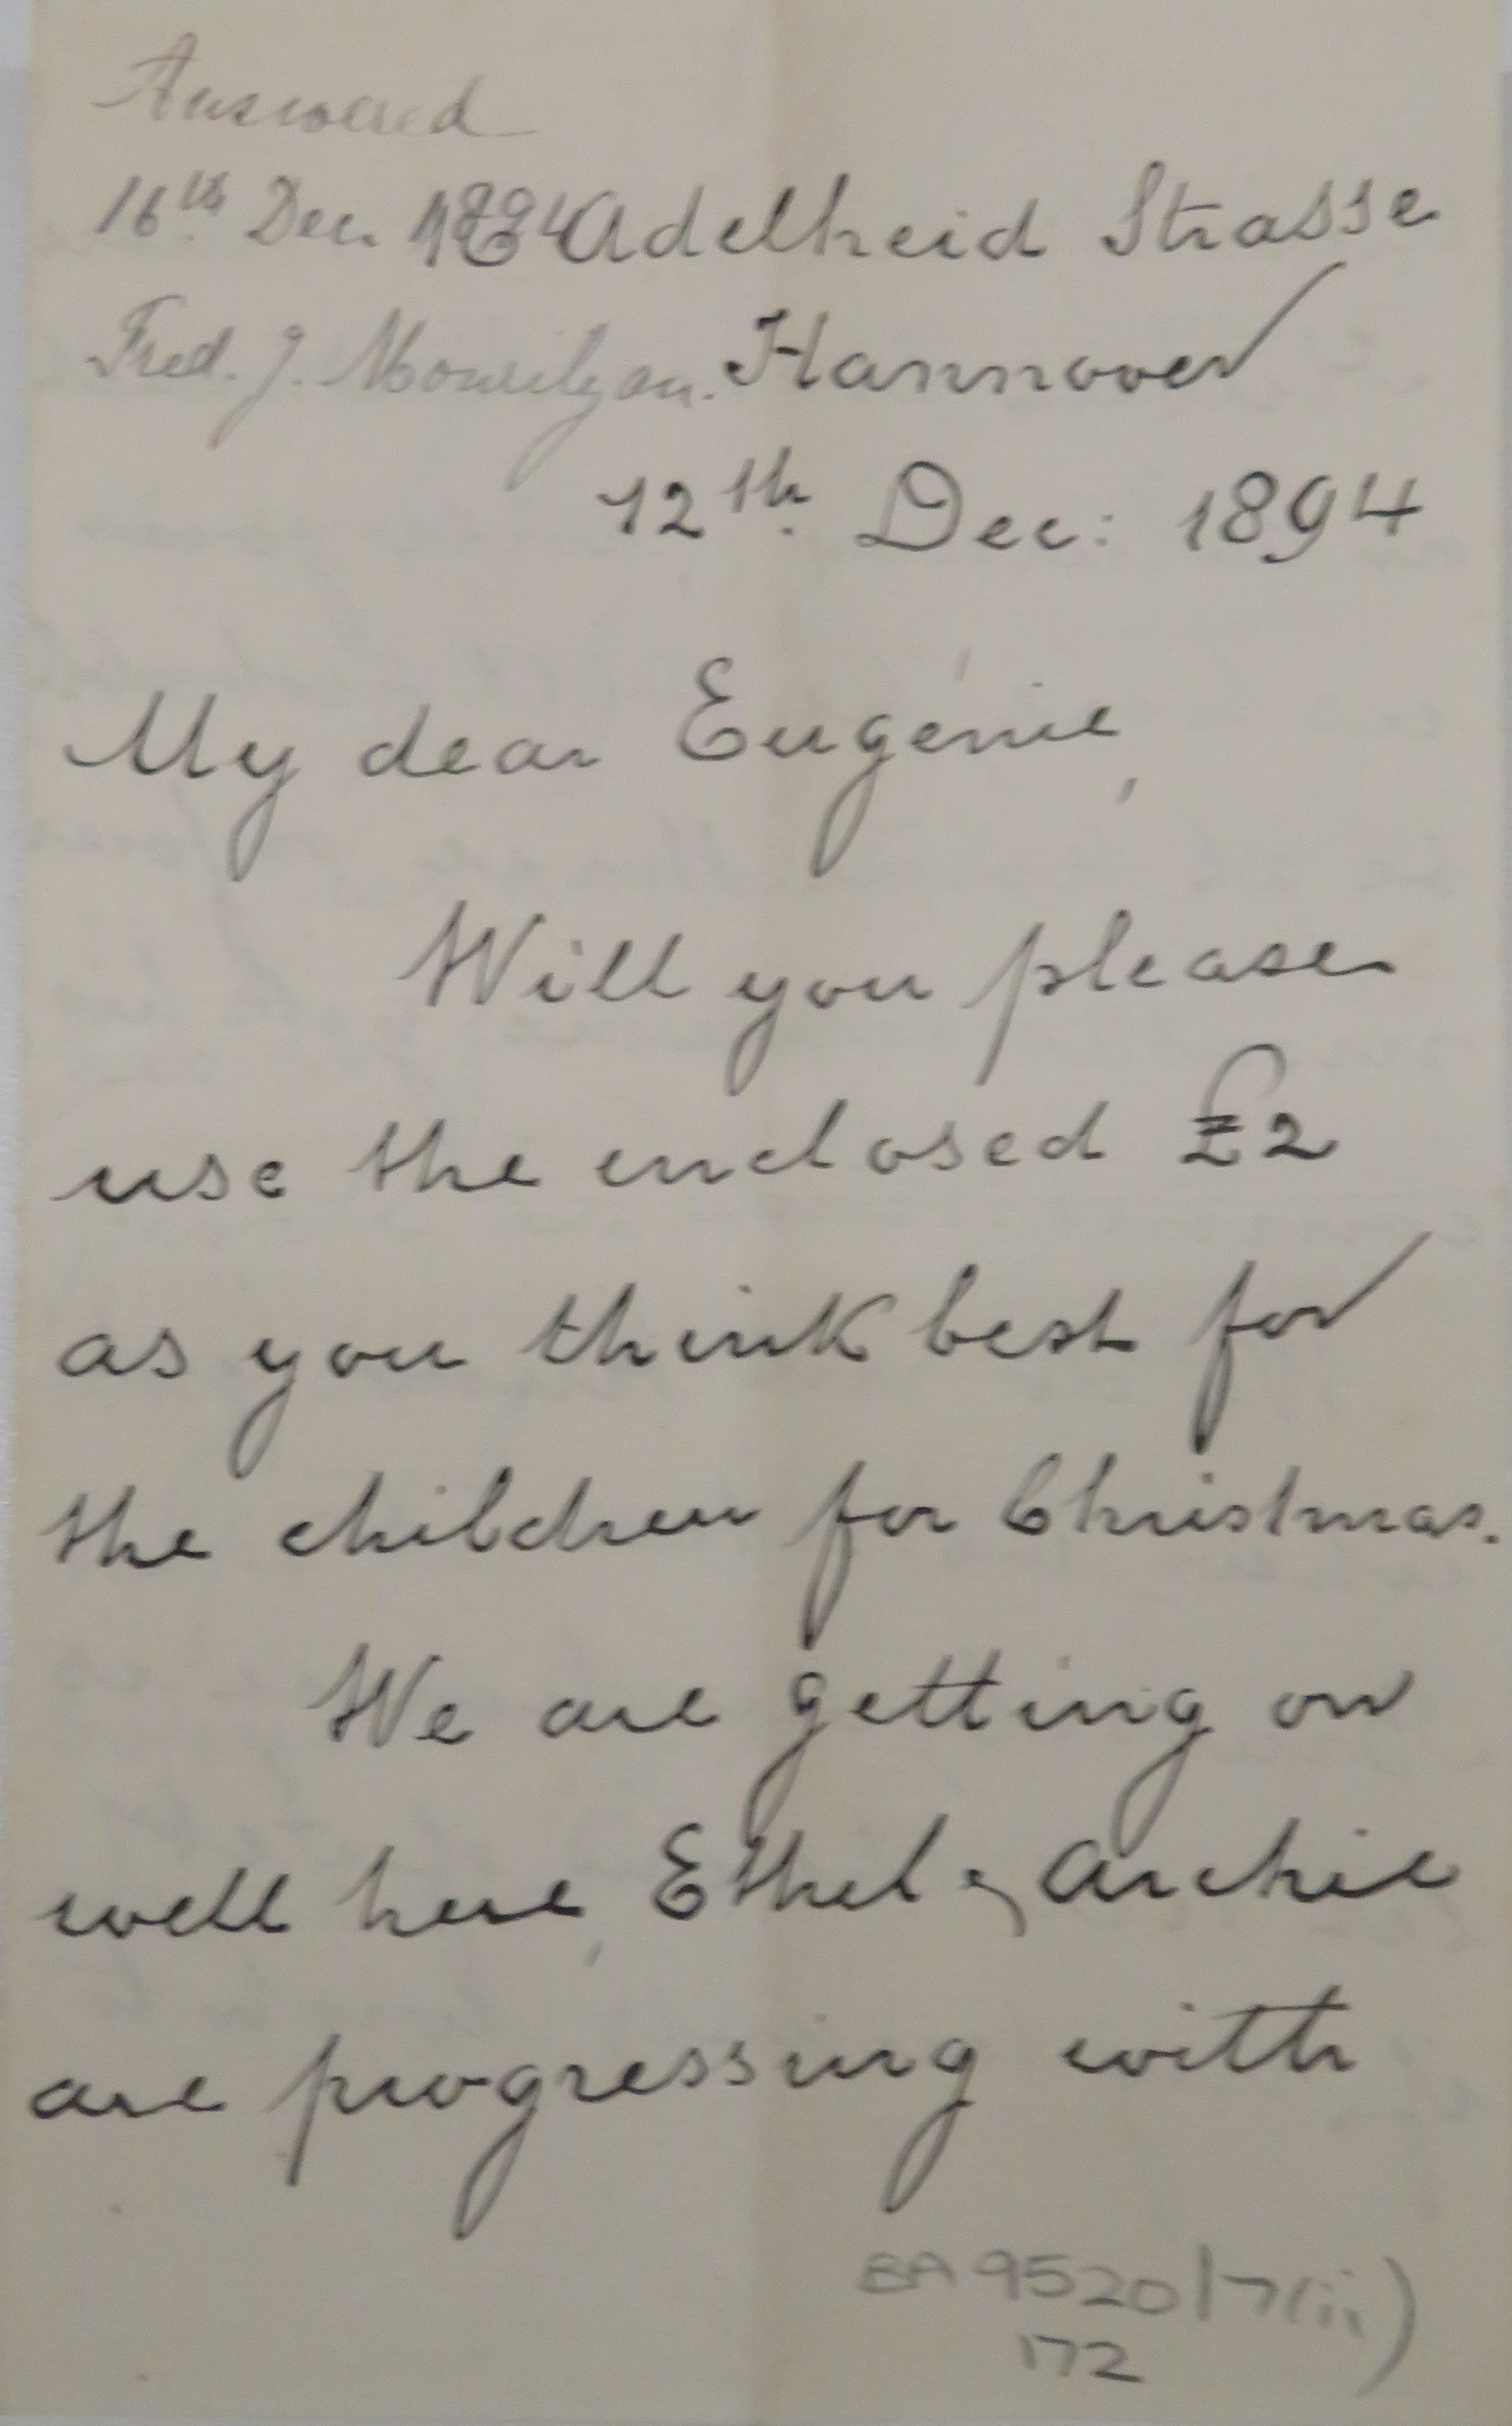 Answered
16th Dec. 1894
Adelheid Strasse
Fred. J.
Hannover
12th. Dec: 1894
My dear Eugénie,
Will you please
use the enclosed £2
as you think best for
the children for Christmas.
We are getting on
well here, Ethel & Archie
are progressing with
BA 9520/7(ii)
172